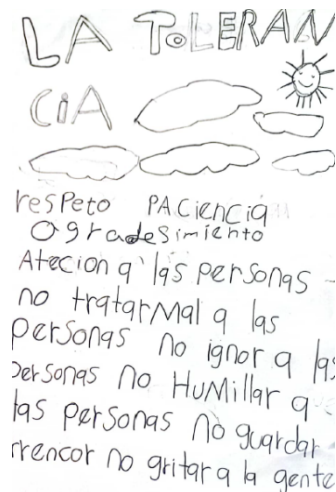 LA TOLERAN
CiA
resPeto PACiencia
Ogradesimiento
Atecion a las personas
no tratarmal a las
personas no ignor a las
personas no HuMillar a
las personas no guardar
rrencor no gritar a la gente